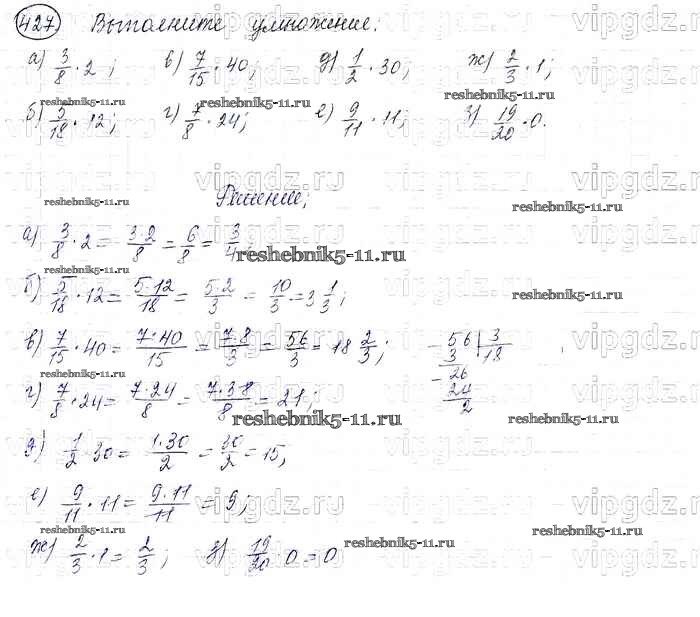 427 Выполните умножение:
а) 3/8 · 2; в) 7/15 · 40; д) 1/2 · 30; ж) 2/3 · 1;
б) 5/18 · 12; г) 7/8 · 24; е) 9/11 · 11; з) 19/20 · 0.
Решение;
а) 3/8 · 2 = 3·2/8 = 6/8 = 3/4
б) 5/18 · 12 = 5·12/18 = 5·2/3 = 10/3 = 3 1/3;
в) 7/15 · 40 = 7·40/15 = 7·8/3 = 56/3 = 18 2/3;
56 3
3 18
26
24
2
г) 7/8 · 24 = 7·24/8 = 7·3·8/8 = 21;
д) 1/2 · 30 = 1·30/2 = 30/2 = 15;
е) 9/11 · 11 = 9·11/11 = 9;
ж) 2/3 · 1 = 2/3; з) 19/20 · 0 = 0
vipgdz.ru
reshebnik5-11.ru